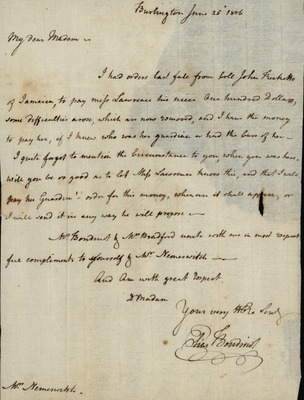 Burlington June 25th 1806
My dear Madam
I had orders last fall from Coll John Fricketts
of Jamaica, to pay Miss Lawrence his neice One hundred Dollars,
some difficulties arose, which are now removed, and I have the money
to pay her, if I knew who was her guardian or had the care of her—
I quite forgot to mention the Circumstance to you, when you was here,
will you be so good as to let Miss Lawrence know this, and that I will
pay her Guardian's order for this money, whenever it shall appear, or
I will send it in any way he will propose—
Mrs Boudinot & Mrs Bradford unite with me in most respect
full compliments to yourself & Mr. Nemewitch—
And Am with great respect
Dr Madam
Your very Hble Servt
Elias Boudinot
Mrs Nemewitch.